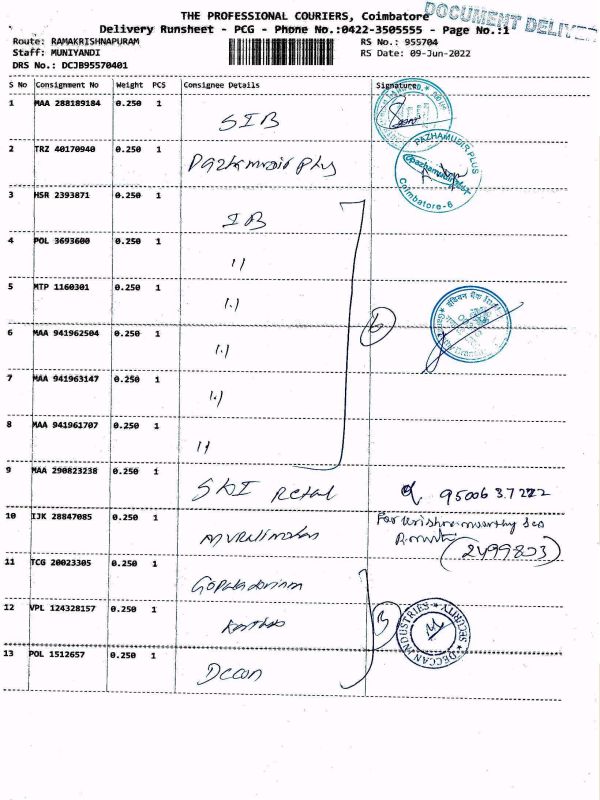 THE PROFESSIONAL COURIERS, Coimbatore
DOCUMENT DELIVER
Delivery Runsheet - PCG - Phone No.:0422-3505555 - Page No.:1
Route: RAMAKRISHNAPURAM RS No.: 955704
Staff: MUNIYANDI RS Date: 09-Jun-2022
DRS No.: DCJB95570401
S No Consignment No Weight PCS Consignee Details Signature
1 MAA 288189184 0.250 1 SIB
2 TRZ 40170940 0.250 1 Pazhamudir Plus
PAZHAMUDIR PLUS
pazhamudirplus
Coimbatore-6
3 HSR 2393871 0.250 1 IB
4 POL 3693600 0.250 1 11
5 MTP 1160301 0.250 1 1.1
6 MAA 941962504 0.250 1 1.1
6
7 MAA 941963147 0.250 1 1.1
8 MAA 941961707 0.250 1 11
9 MAA 290823238 0.250 1 SKI Retail 9500637222
10 IJK 28847085 0.250 1 For Krishnamoorthy
(2499803)
11 TCG 20023305 0.250 1
12 VPL 124328157 0.250 1 3
DECCAN INDUSTRIES * SECURITY *
13 POL 1512657 0.250 1 Deccan